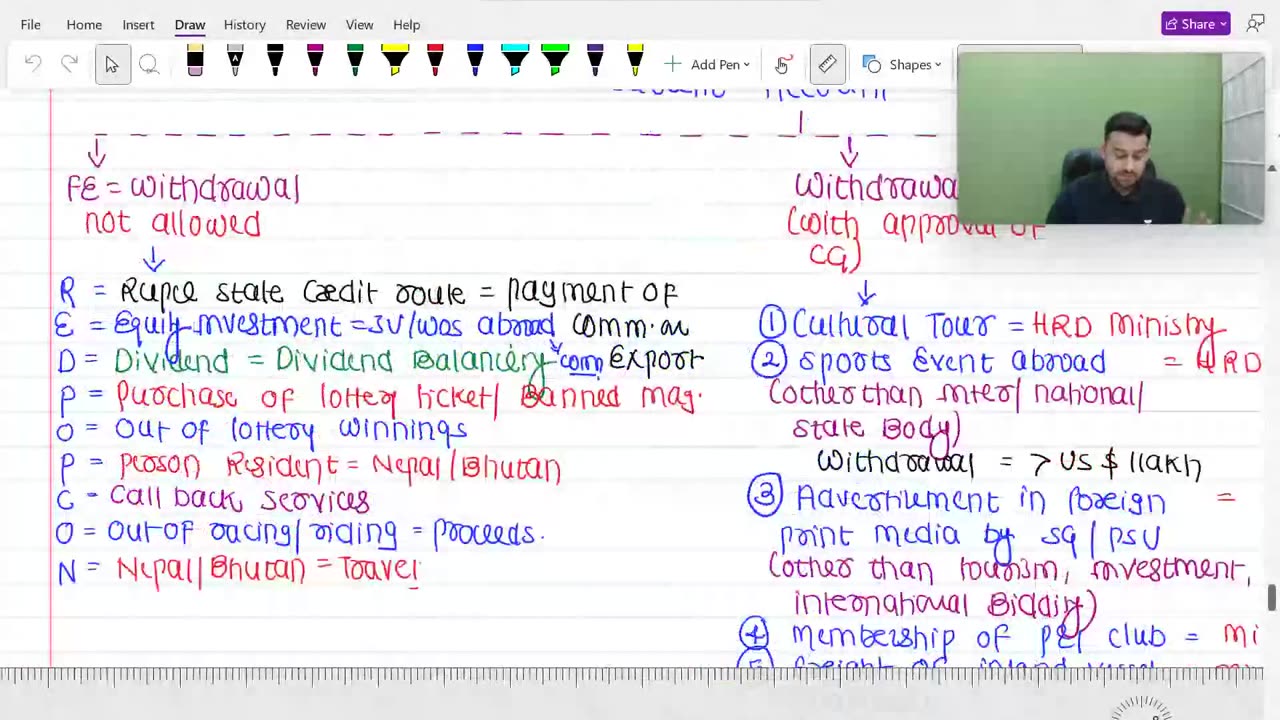 File Home Insert Draw History Review View Help Share
Add Pen Shapes
Account
FE = Withdrawal
not allowed
R = Rupee state Credit route = payment of
E = Equity investment = JV/WOS abroad comm. on
D = Dividend = Dividend Balancing comm Export
P = Purchase of lottery ticket/ Banned mag.
O = Out of lottery winnings
P = Person Resident = Nepal/Bhutan
C = Call back services
O = Out of racing/riding = proceeds.
N = Nepal/Bhutan = Travel
Withdrawa
(with approval of
CG)
① Cultural Tour = HRD Ministry
② Sports Event abroad = HRD
(other than inter/national/
state Body)
Withdrawal = > US $ 1 lakh
③ Advertisement in foreign =
print media by SG / PSU
(other than tourism, investment,
international Bidding)
④ membership of P&I club = mi
⑤ freight of inland vessel